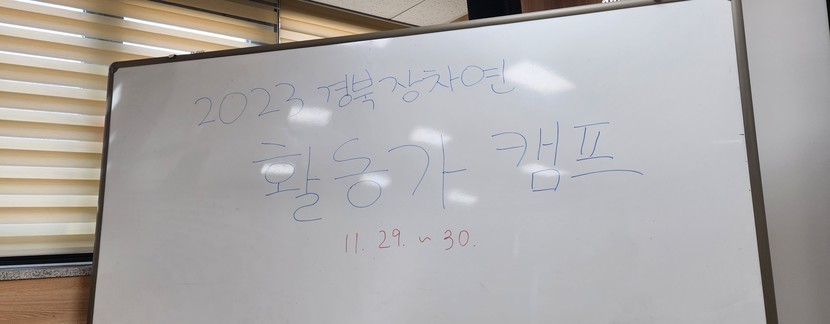 2023 경북장차연
활동가 캠프
11. 29. ~ 30.